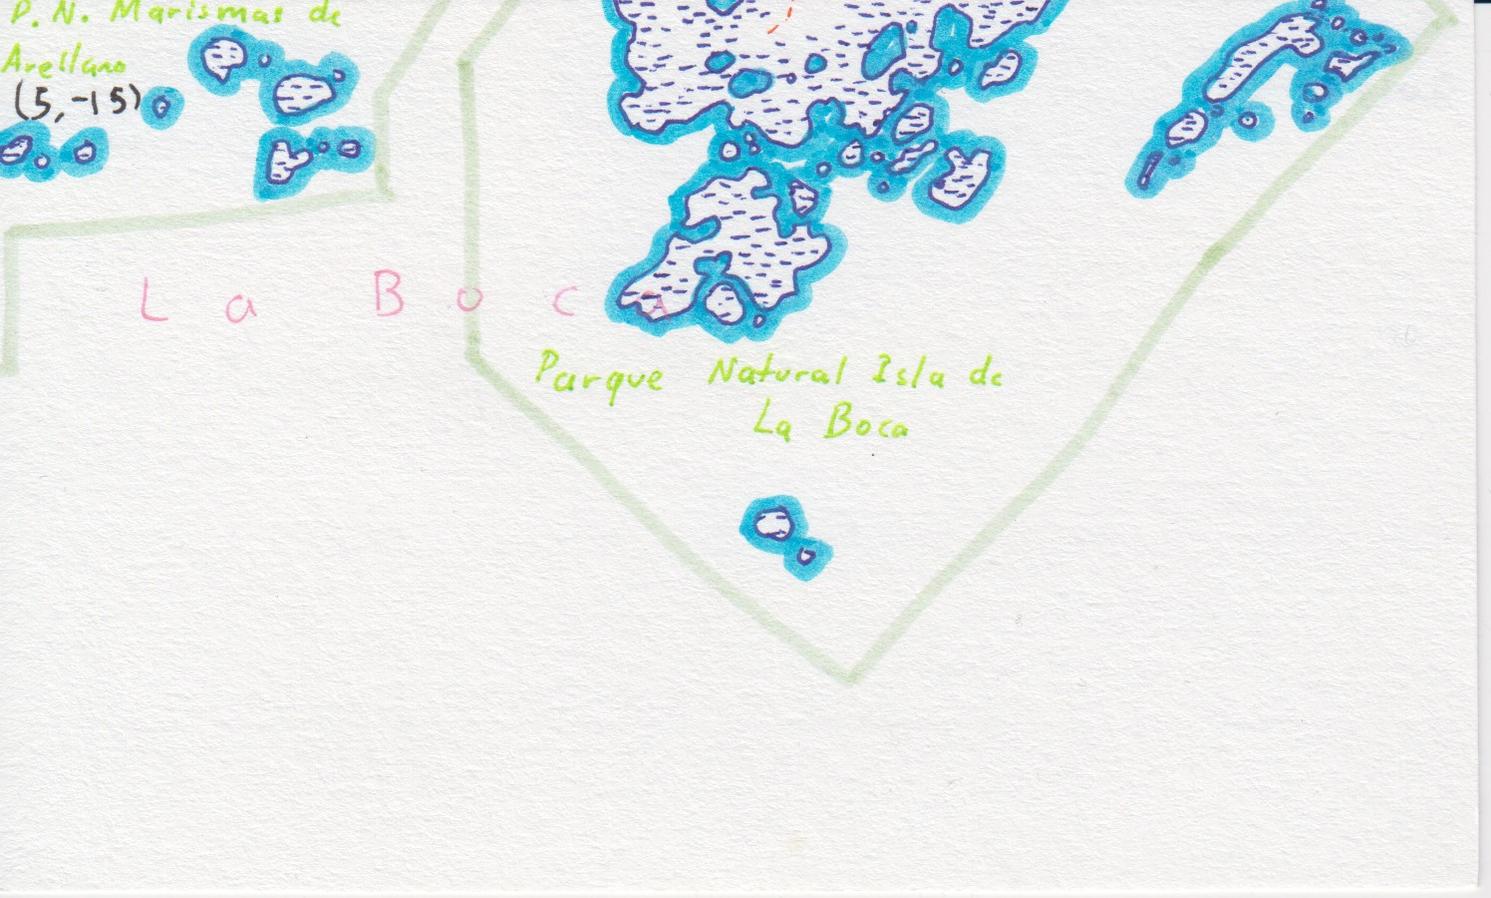 P. N. Marismas de
Arellano
(5,-15)
La Boca
Parque Natural Isla de
La Boca